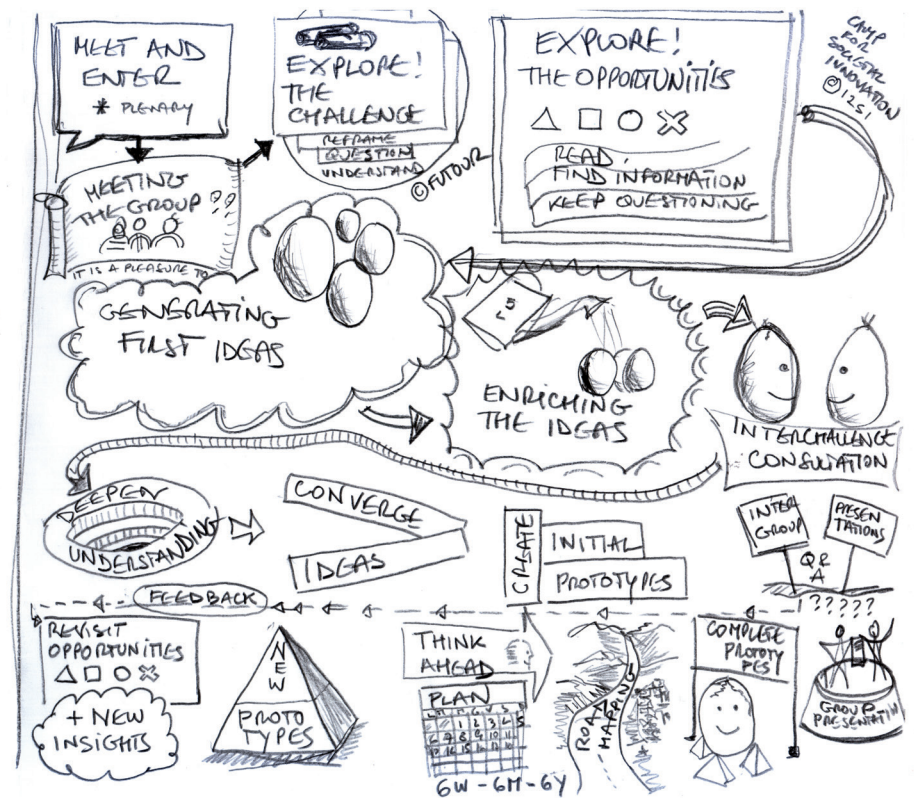 MEET AND
ENTER
* PLENARY
EXPLORE!
THE
CHALLENGE
REFRAME
QUESTION
UNDERSTAND
© FUTOUR
EXPLORE!
THE OPPORTUNITIES
READ,
FIND INFORMATION
KEEP QUESTIONING
CAMP
FOR
SOCIETAL
INNOVATION
MEETING
THE GROUP ??
IT IS A PLEASURE TO
GENERATING
FIRST IDEAS
ENRICHING
THE IDEAS
INTERCHALLENGE
CONSULTATION
DEEPEN
UNDERSTANDING
CONVERGE
IDEAS
CREATE
INITIAL
PROTOTYPES
INTER
GROUP
PRESEN
TATIONS
Q &
A
FEEDBACK
?????
REVISIT
OPPORTUNITIES
+ NEW
INSIGHTS
NEW
PROTO
TYPES
THINK
AHEAD
PLAN
6W - 6M - 6Y
ROAD
MAPPING
COMPLETE
PROTOTY
PES
GROUP
PRESENTATION